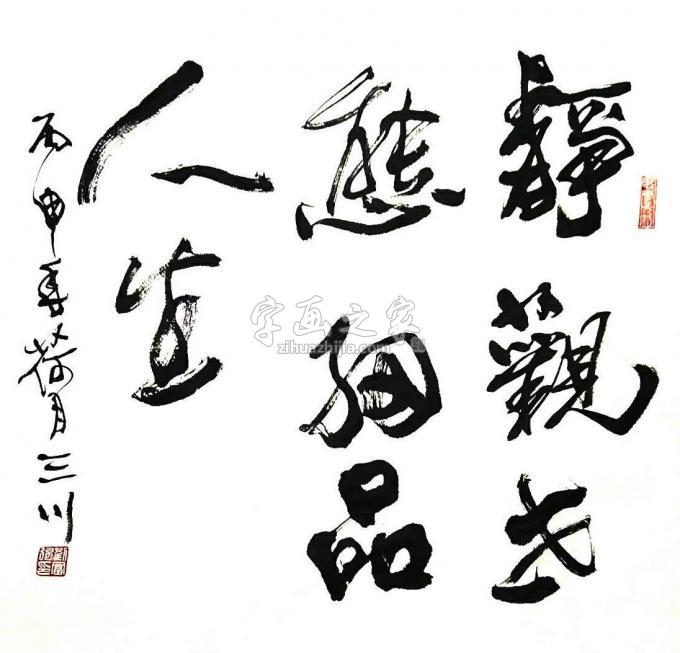 靜觀世
態細品
人生
丙申年荷月三川
字画之家
zihuazhijia.com